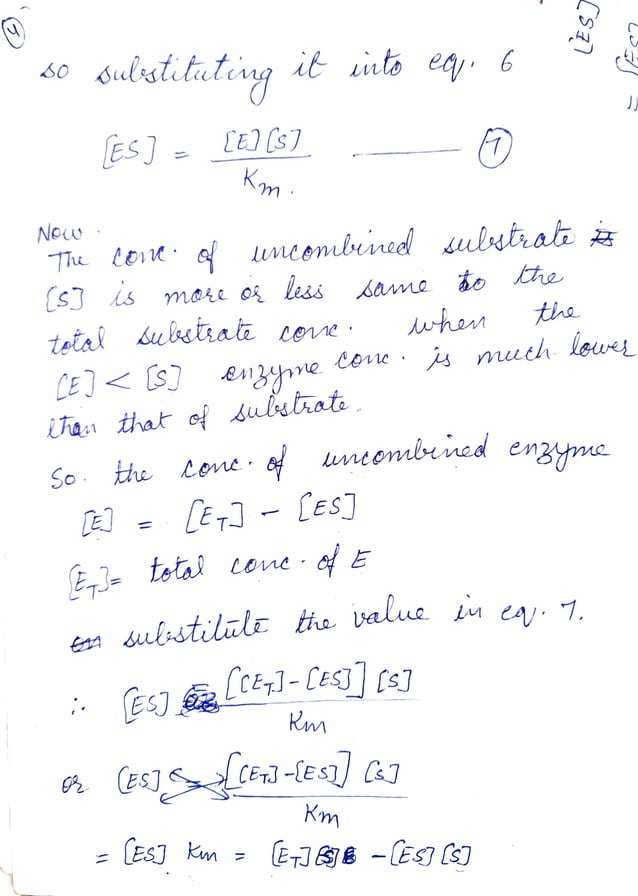 4
[ES]
= [ES]
so substituting it into eq. 6
[ES] = [E][S] / Km. ——— 7
Now.
The conc. of uncombined substrate is
[S] is more or less same to the
total substrate conc. when the
[E] < [S] enzyme conc. is much lower
than that of substrate.
So. the conc. of uncombined enzyme
[E] = [ET] - [ES]
[ET] = total conc. of E
substitute the value in eq. 7.
∴ [ES] = [[ET] - [ES]] [S] / Km
or [ES] [[ET] - [ES]] [S] / Km
= [ES] Km = [ET] [S] - [ES] [S]